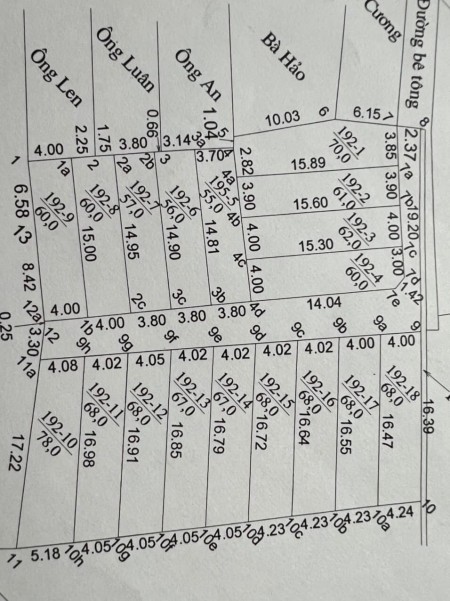 Ông Len
Ông Luân
Ông An
Bà Hảo
Cương
Đường bê tông
2.25
1.75
0.66
1.04
5
10.03
6
6.15
7
8
1
4.00
1a
2
3.80
2a
2b
3.14
3
3a
3.70
4
2.82
3.85
2.37
7a
192-1
70,0
15.89
4a
3.90
192-2
61,0
3.90
7b
19.20
4b
15.60
4.00
192-3
62,0
4.00
7c
4c
15.30
3.00
7d
4.00
192-4
60,0
1.42
7e
6.58
13
192-9
60,0
192-8
60,0
15.00
192-7
57,0
14.95
192-6
56,0
14.90
195-5
55,0
14.81
8.42
12a
0.25
3.30
12
4.00
1b
4.00
2c
3.80
3c
3.80
3b
3.80
4d
14.04
11a
9h
9g
9f
9e
9d
9c
9b
9a
9
4.08
4.02
4.05
4.02
4.02
4.02
4.02
4.00
4.00
192-10
78,0
192-11
68,0
192-12
68,0
192-13
67,0
192-14
67,0
192-15
68,0
192-16
68,0
192-17
68,0
192-18
68,0
17.22
16.98
16.91
16.85
16.79
16.72
16.64
16.55
16.47
16.39
11
5.18
10h
4.05
10g
4.05
10f
4.05
10e
4.05
10d
4.23
10c
4.23
10b
4.23
10a
4.24
10